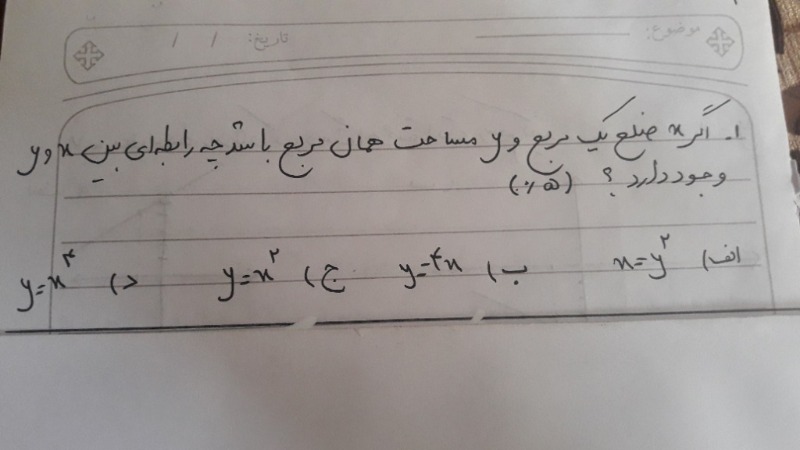 موضوع:
تاریخ: / /
۱. اگر x ضلع یک مربع و y مساحت همان مربع باشد چه رابطه‌ای بین x و y
وجود دارد؟ (۰/۵)
الف) x=y² ب) y=۴x ج) y=x² د) y=x⁴